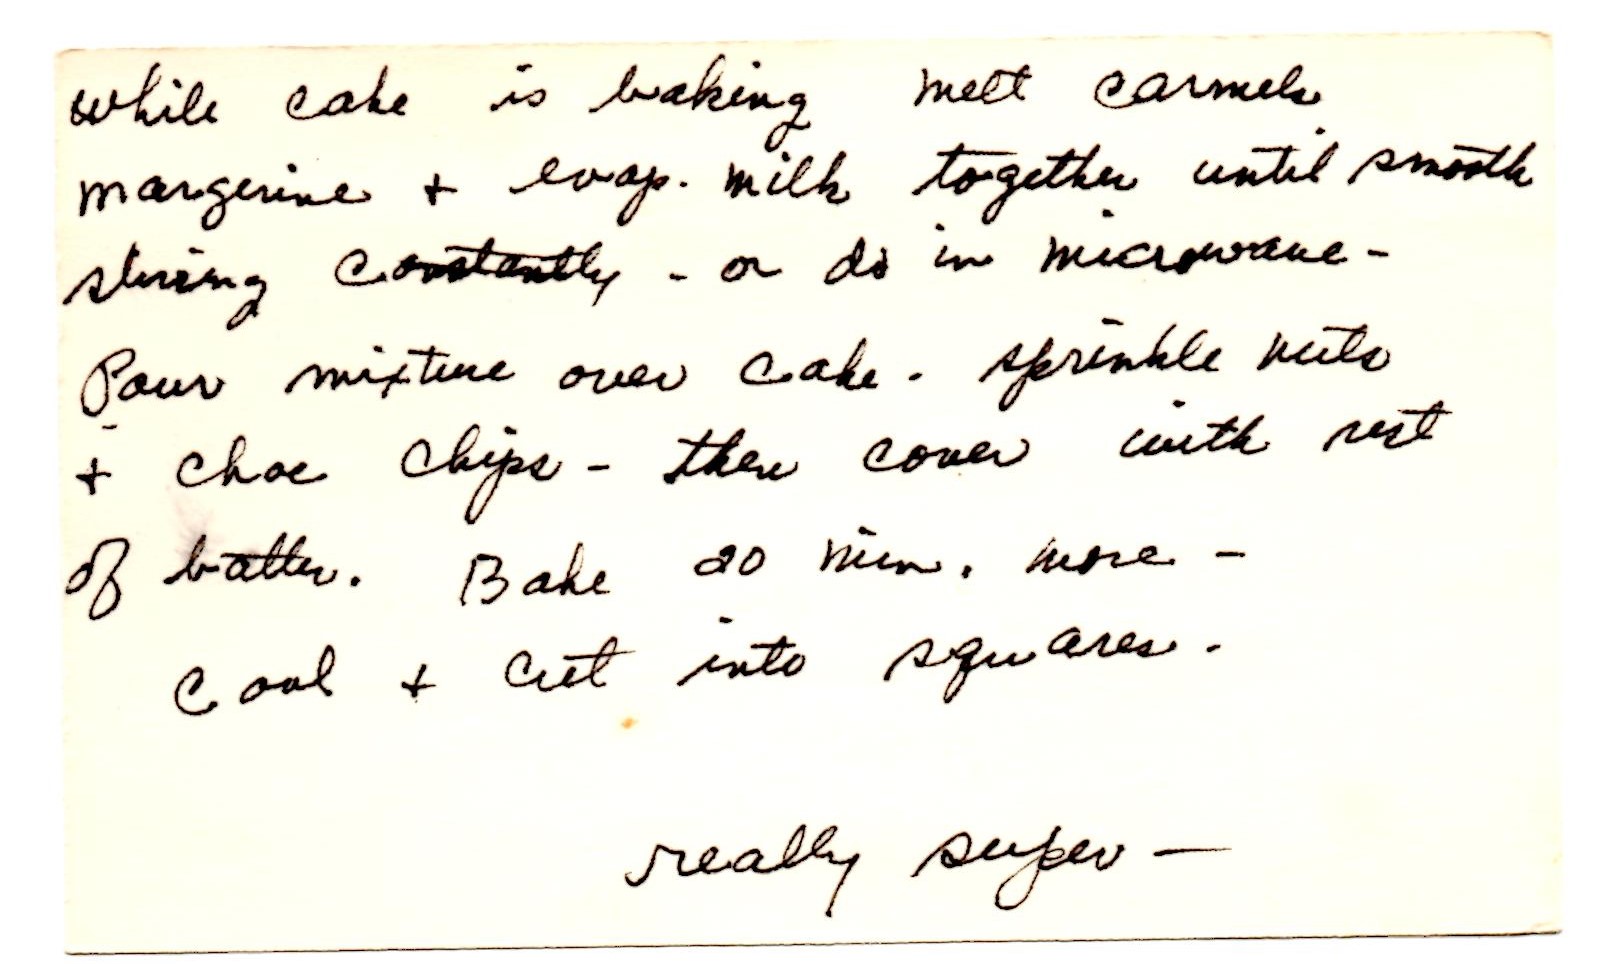 while cake is baking melt carmels
margerine + evap. milk together until smooth
stiring constantly - or do in microwave -
Pour mixture over cake. sprinkle nuts
+ choc chips - then cover with rest
of batter. Bake 20 min. more -
Cool + cut into squares.
really super —